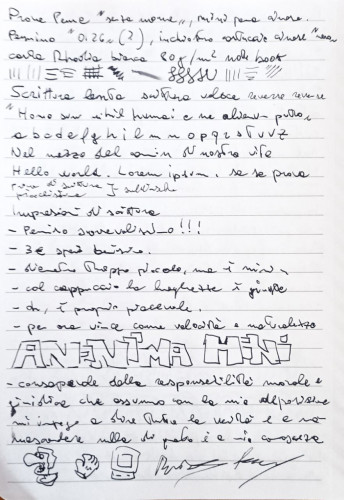 Prova Penna "senza nome", mini penna amore.
Pennino "0.26" (?), inchiostro
carta Rhodia bianca 80g/m² note book
Scrittura lenta scrittura veloce reverse reverse
"Homo sum nihil humani a me alienum puto"
a b c d e f g h i l m n o p q r s t u v z
Nel mezzo del cammin di nostra vita
Hello world. Lorem ipsum. se se prova
prova di scrittura
Impressioni di scrittura
- Pennino scorrevolissimo!!!
- 3€ spesi benissimo.
- diametro troppo piccolo, ma è mini
- col cappuccio la lunghezza è giusta
- oh, è proprio piacevole.
- per ora vince come velocità e naturalezza
ANONIMA MINI
- consapevole della responsabilità morale e
giuridica che assumo con la mia deposizione
mi impegno a dire tutta la verità e a non
nascondere nulla di quanto è a mia conoscenza